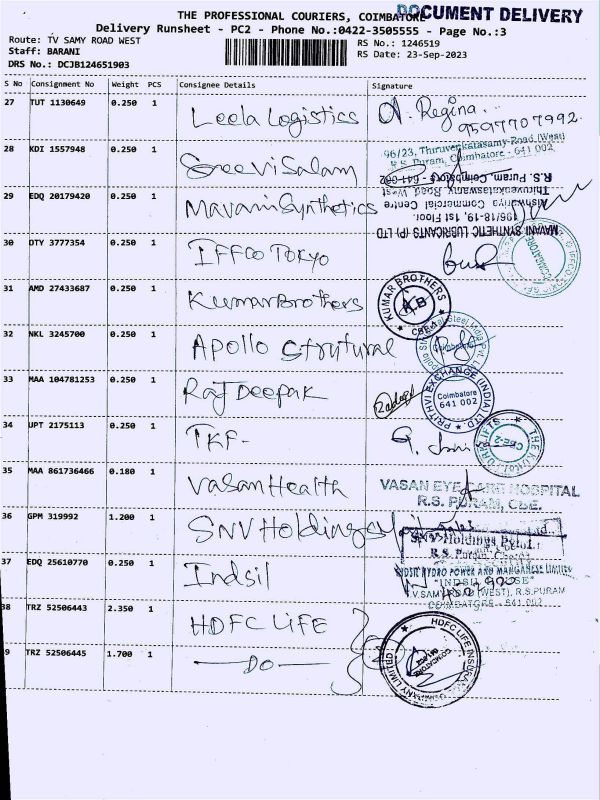 THE PROFESSIONAL COURIERS, COIMBATORE
DOCUMENT DELIVERY
Delivery Runsheet - PC2 - Phone No.:0422-3505555 - Page No.:3
Route: TV SAMY ROAD WEST
RS No.: 1246519
Staff: BARANI
RS Date: 23-Sep-2023
DRS No.: DCJB124651903
S No Consignment No Weight PCS Consignee Details Signature
27 TUT 1130649 0.250 1 Leela Logistics A. Regina. 9597707992
28 KDI 1557948 0.250 1 Sree Vi Salam
96/23, Thiruvenkatasamy Road (West)
R.S. Puram, Coimbatore - 641 002
29 EDQ 20179420 0.250 1 Mavani Synthetics
MAVANI SYNTHETIC LUBRICANTS (P) LTD
196/18-19, 1st Floor,
Aishwariya Commercial Centre
Thiruvenkataswamy Road West
R.S. Puram, Coimbatore - 641 002
30 OTY 3777354 0.250 1 IFFCO TOKYO
31 AMD 27433687 0.250 1 Kumar Brothers
KUMAR BROTHERS
K.B
CBE
32 NKL 3245700 0.250 1 APollo Strutural
Coimbatore
33 MAA 104781253 0.250 1 Raj Deepak
PRITHVI EXCHANGE (INDIA) LTD
Coimbatore
641 002
34 UPT 2175113 0.250 1 TKF-
CBE-2
35 MAA 861736466 0.180 1 Vasan Health
VASAN EYE CARE HOSPITAL
R.S. PURAM, CBE.
36 GPM 319992 1.200 1 SNV Holdings
SNV Holdings Pvt. Ltd
R.S. Puram,
37 EDQ 25610770 0.250 1 Indsil
INDSIL HYDRO POWER AND MANGANESE LIMITED
"INDSIL HOUSE"
T.V.SAMY ROAD (WEST), R.S.PURAM
COIMBATORE - 641 002
38 TRZ 52506443 2.350 1 HDFC LIFE
9 TRZ 52506445 1.700 1 —DO—
HDFC LIFE INSURANCE COMPANY LIMITED
COIMBATORE